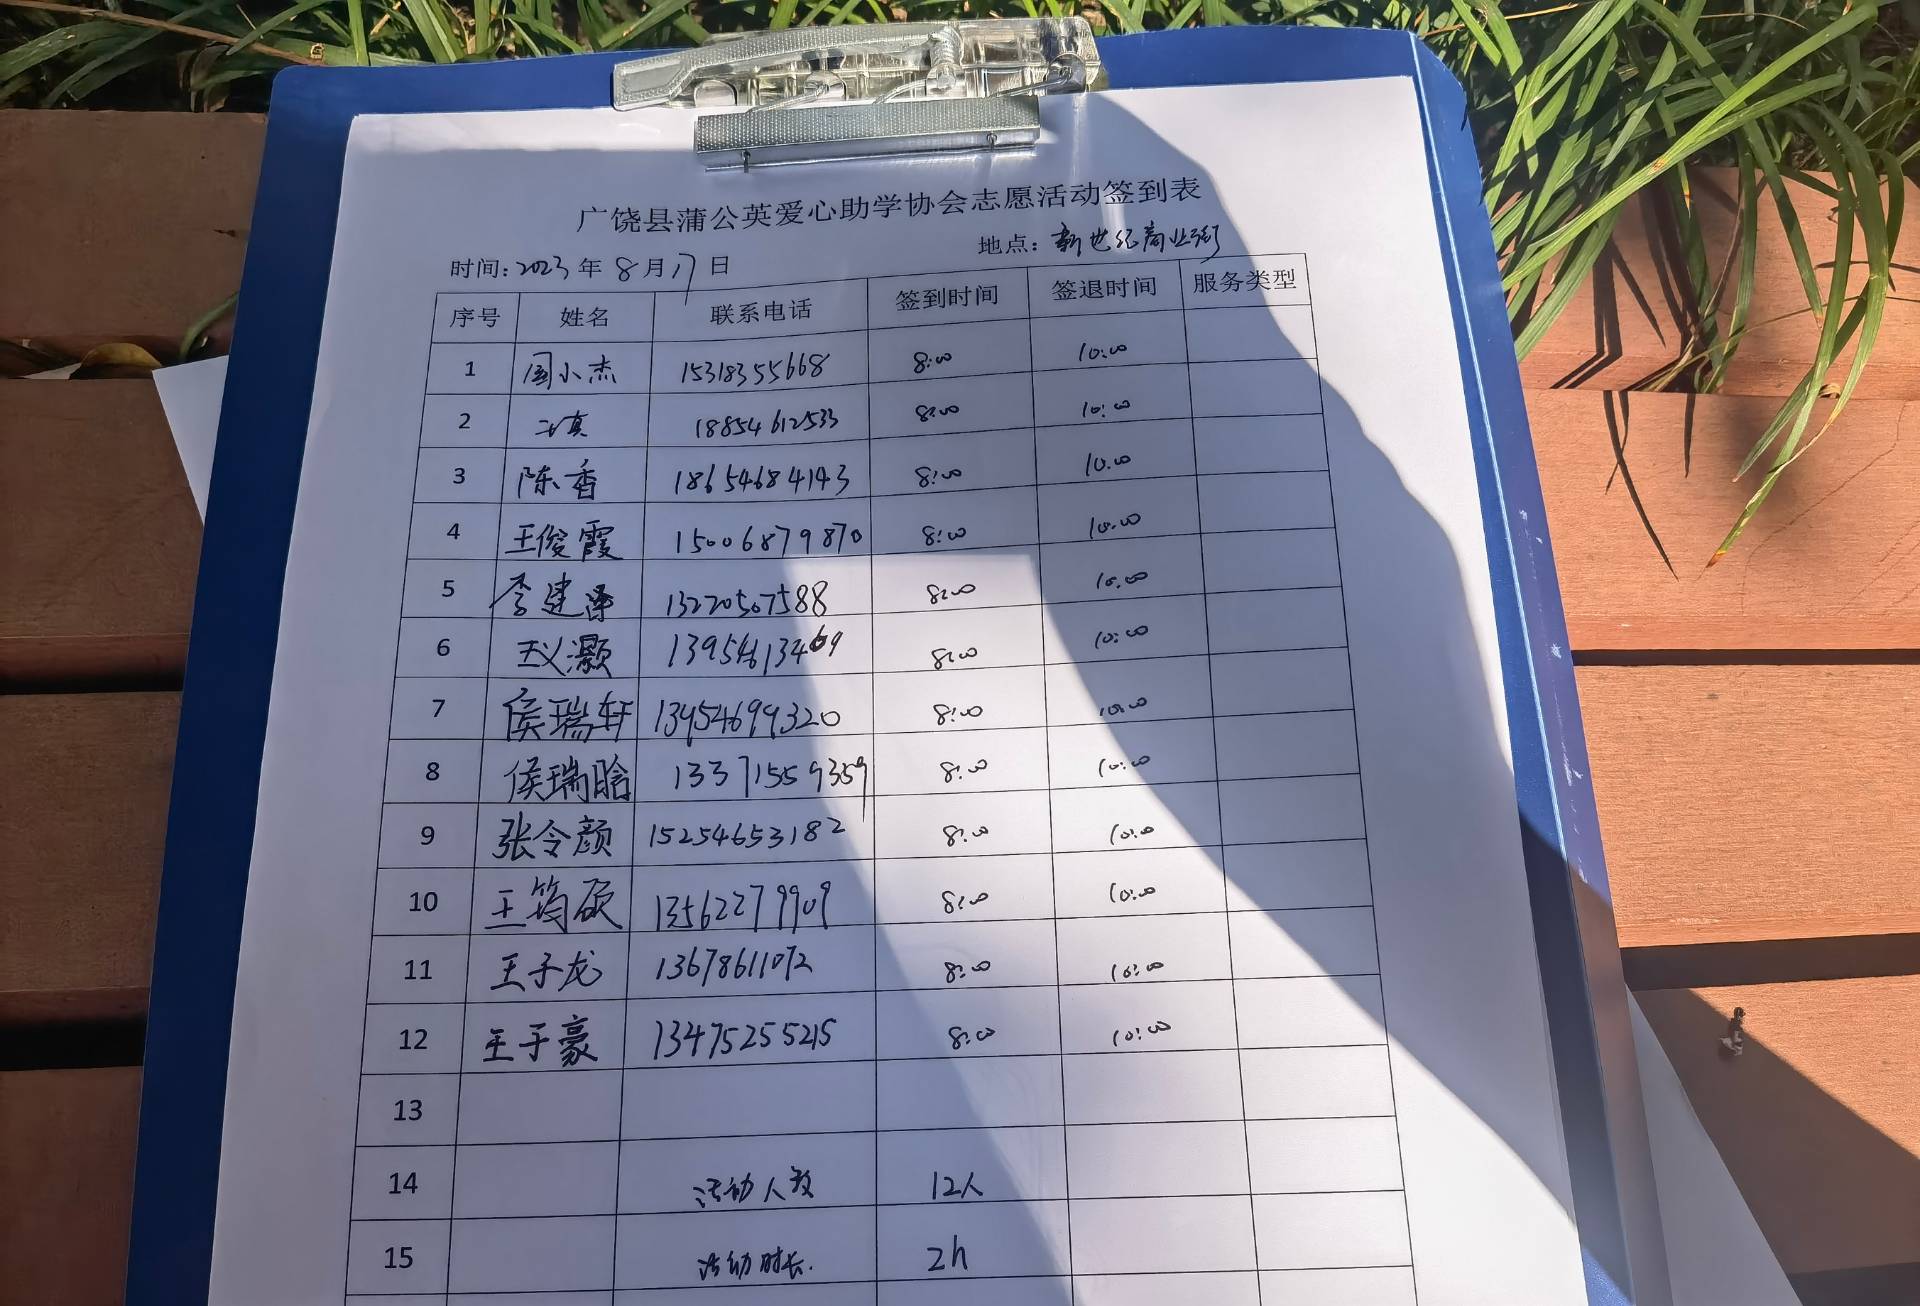 广饶县蒲公英爱心助学协会志愿活动签到表
时间: 2023 年 8 月 17 日 地点: 新世纪商业街
序号 姓名 联系电话 签到时间 签退时间 服务类型
1 周小杰 15318355668 8:00 10:00
2 18854612533 8:00 10:00
3 陈香 18654684143 8:00 10:00
4 王俊霞 15006879870 8:00 10:00
5 李建泽 13220507588 8:00 10:00
6 王义灏 13954613469 8:00 10:00
7 侯瑞轩 13954699320 8:00 10:00
8 侯瑞晗 13371559359 8:00 10:00
9 张令颜 15254653182 8:00 10:00
10 王筠硕 13562279909 8:00 10:00
11 王子龙 13678611072 8:00 10:00
12 王子豪 13475255215 8:00 10:00
13
14 活动人数 12人
15 活动时长. 2h